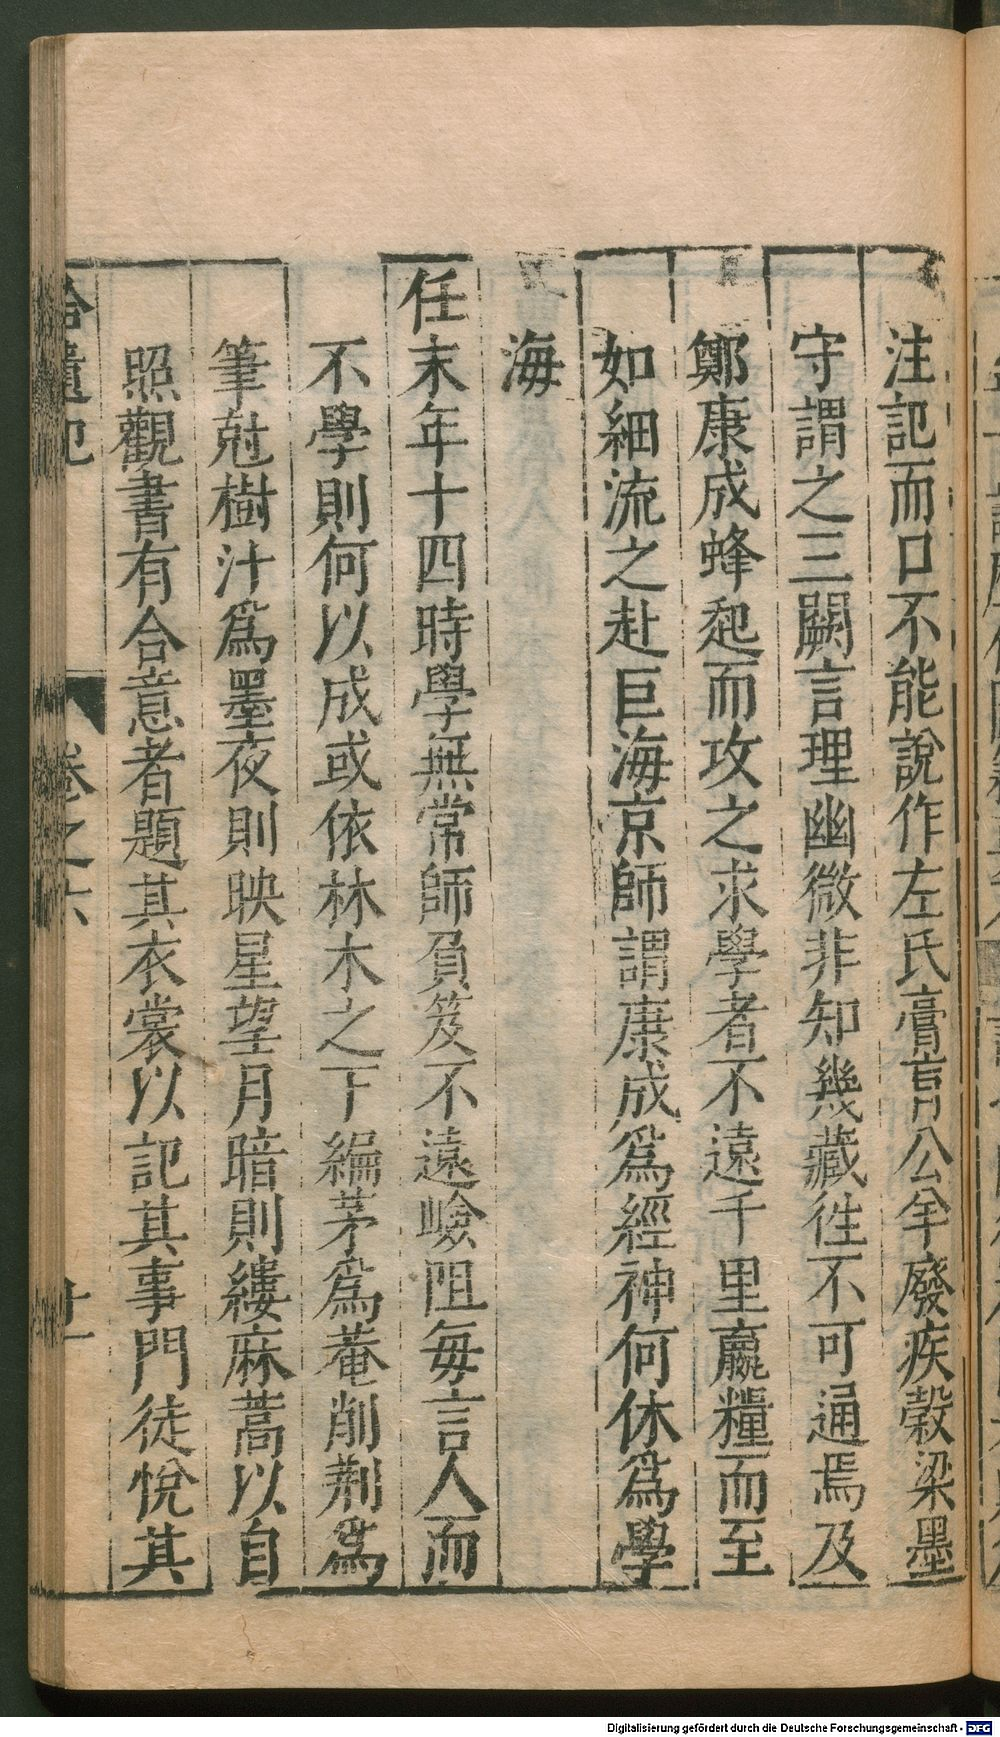 注記而口不能說作左氏膏肓公羊廢疾穀梁墨
守謂之三闕言理幽微非知幾藏徃不可通焉及
鄭康成蜂起而攻之求學者不遠千里羸糧而至
如細流之赴巨海京師謂康成爲經神何休爲學
海
任末年十四時學無常師負笈不遠嶮阻每言人而
不學則何以成或依林木之下編茅爲菴削荆爲
筆尅樹汁爲墨夜則映星望月暗則縷麻蒿以自
照觀書有合意者題其衣裳以記其事門徒悅其
拾遺記 卷之六
Digitalisierung gefördert durch die Deutsche Forschungsgemeinschaft - DFG